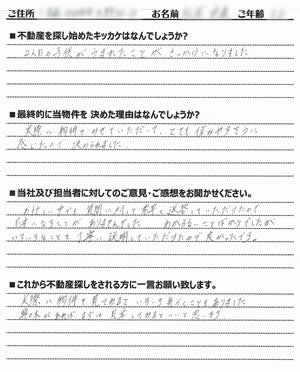 ご住所 お名前 ご年齢
■不動産を探し始めたキッカケはなんでしょうか?
2人目の子供がうまれたことがきっかけになりました
■最終的に当物件を 決めた理由はなんでしょうか?
実際に物件をみせていただいて、とても住みやすそうに
感じたので 決めました。
■当社及び担当者に対してのご意見・ご感想をお聞かせください。
お忙しい中でも 質問に対して素早く返答していただけたので
不安になることが ありませんでした わからないことばかりでしたが
いろいろなことも丁寧に説明していただけたので良かったです。
■これから不動産探しをされる方に一言お願い致します。
実際に物件を見てみると いろいろ気づくこともありました
興味があれば まずは 見学してみるといいと思います